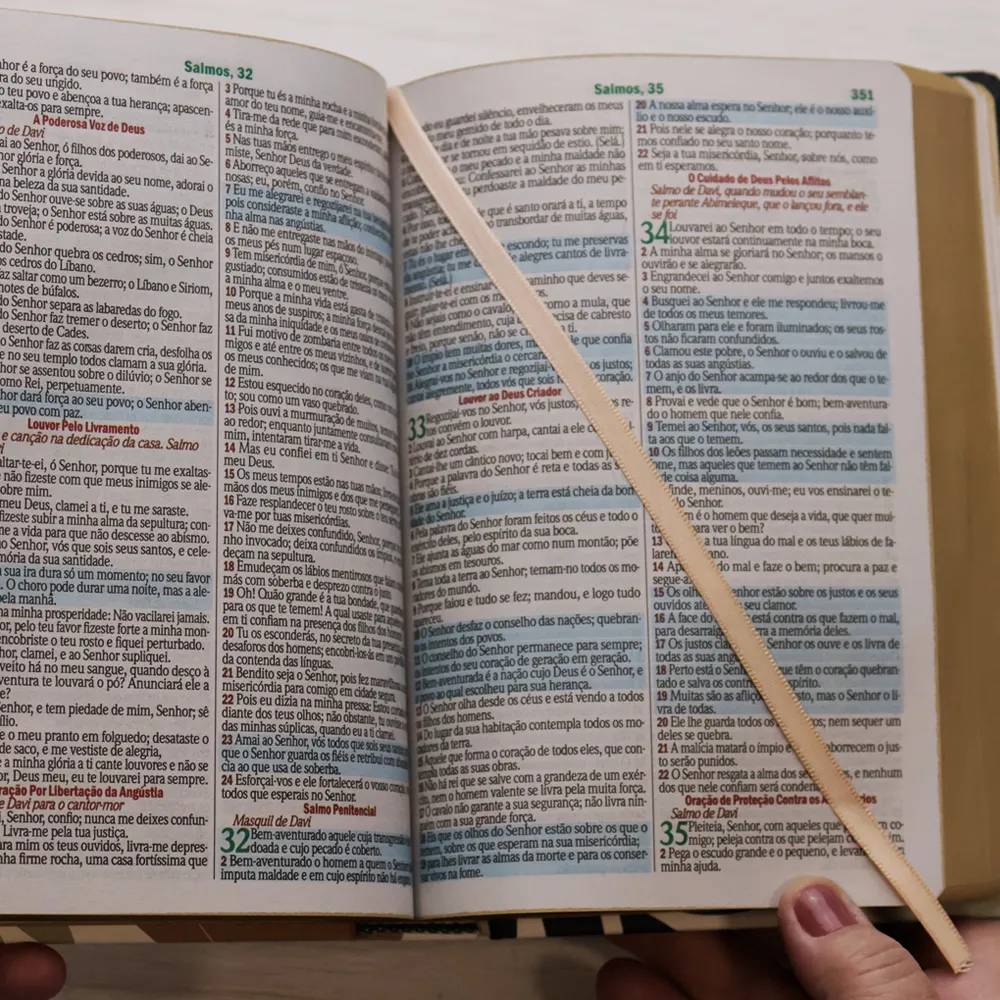 Salmos, 32
hor é a força do seu povo; também é a força
ra do seu ungido.
o teu povo e abençoa a tua herança; apascen-
exalta-os para sempre.
A Poderosa Voz de Deus
o de Davi
ai ao Senhor, ó filhos dos poderosos, dai ao Se-
hor glória e força.
o Senhor a glória devida ao seu nome, adorai o
na beleza da sua santidade.
do Senhor ouve-se sobre as suas águas; o Deus
a troveja; o Senhor está sobre as muitas águas.
do Senhor é poderosa; a voz do Senhor é cheia
stade.
do Senhor quebra os cedros; sim, o Senhor
os cedros do Líbano.
faz saltar como um bezerro; o Líbano e Siriom,
hotes de búfalos.
do Senhor separa as labaredas do fogo.
do Senhor faz tremer o deserto; o Senhor faz
deserto de Cades.
o Senhor faz as corsas darem cria, desfolha os
e no seu templo todos clamam a sua glória.
hor se assentou sobre o dilúvio; o Senhor se
omo Rei, perpetuamente.
hor dará força ao seu povo; o Senhor aben-
eu povo com paz.
Louvor Pelo Livramento
e canção na dedicação da casa. Salmo
vi
altar-te-ei, ó Senhor, porque tu me exaltas-
e não fizeste com que meus inimigos se ale-
obre mim.
meu Deus, clamei a ti, e tu me saraste.
fizeste subir a minha alma da sepultura; con-
me a vida para que não descesse ao abismo.
ao Senhor, vós que sois seus santos, e cele-
mória da sua santidade.
a sua ira dura só um momento; no seu favor
. O choro pode durar uma noite, mas a ale-
pela manhã.
na minha prosperidade: Não vacilarei jamais.
or, pelo teu favor fizeste forte a minha mon-
encobriste o teu rosto e fiquei perturbado.
hor, clamei, e ao Senhor supliquei.
veito há no meu sangue, quando desço à
ventura te louvará o pó? Anunciará ele a
e?
enhor, e tem piedade de mim, Senhor; sê
ílio.
e o meu pranto em folguedo; desataste o
de saco, e me vestiste de alegria,
e a minha glória a ti cante louvores e não se
or, Deus meu, eu te louvarei para sempre.
ração Por Libertação da Angústia
e Davi para o cantor-mor
Senhor, confio; nunca me deixes confun-
Livra-me pela tua justiça.
ara mim os teus ouvidos, livra-me depres-
nha firme rocha, uma casa fortíssima que
3 Porque tu és a minha rocha e a minha
amor do teu nome, guia-me e encaminha-
4 Tira-me da rede que para mim
és a minha força.
5 Nas tuas mãos entrego o meu
miste, Senhor Deus da verdade.
6 Aborreço aqueles que se entregam a
nosas; eu, porém, confio no Senhor.
7 Eu me alegrarei e regozijarei na tua
pois consideraste a minha aflição;
nha alma nas angústias.
8 E não me entregaste nas mãos do inimigo;
os meus pés num lugar espaçoso.
9 Tem misericórdia de mim, ó Senhor, porque
gustiado; consumidos estão de tristeza os meus
a minha alma e o meu ventre.
10 Porque a minha vida está gasta de
meus anos de suspiros; a minha força
sa da minha iniquidade e os meus ossos
11 Fui motivo de zombaria entre todos os
migos e até entre os meus vizinhos, e de
os meus conhecidos; os que me viam na rua
de mim.
12 Estou esquecido no coração deles, como
to; sou como um vaso quebrado.
13 Pois ouvi a murmuração de muitos,
ao redor; enquanto juntamente
mim, intentaram tirar-me a vida.
14 Mas eu confiei em ti Senhor e disse: Tu
meu Deus.
15 Os meus tempos estão nas tuas mãos;
mãos dos meus inimigos e dos que me
16 Faze resplandecer o teu rosto sobre o teu
va-me por tuas misericórdias.
17 Não me deixes confundido, Senhor, porque
nho invocado; deixa confundidos os ímpios,
deçam na sepultura.
18 Emudeçam os lábios mentirosos que falam
más com soberba e desprezo contra o justo.
19 Oh! Quão grande é a tua bondade, que
para os que te temem! A qual usaste para
em ti confiam na presença dos filhos dos homens
20 Tu os esconderás, no secreto da tua presença,
desaforos dos homens; encobri-los-ás em um
da contenda das línguas.
21 Bendito seja o Senhor, pois fez maravilhosa
misericórdia para comigo em cidade segura.
22 Pois eu dizia na minha pressa: Estou
diante dos teus olhos; não obstante, tu ouviste
das minhas súplicas, quando eu a ti clamei.
23 Amai ao Senhor, vós todos que sois seus santos
que o Senhor guarda os fiéis e retribui com
cia ao que usa de soberba.
24 Esforçai-vos e ele fortalecerá o vosso coração,
todos que esperais no Senhor.
Salmo Penitencial
Masquil de Davi
32 Bem-aventurado aquele cuja transgressão
doada e cujo pecado é coberto.
2 Bem-aventurado o homem a quem o Senhor
imputa maldade e em cujo espírito não há
Salmos, 35
351
eu guardei silêncio, envelheceram os meus
meu gemido de todo o dia.
dia e de noite a tua mão pesava sobre mim;
se tornou em sequidão de estio. (Selá.)
o meu pecado e a minha maldade não
Confessarei ao Senhor as minhas
perdoaste a maldade do meu pe-
(Selá.)
que é santo orará a ti, a tempo
de te poder achar transbordar de muitas águas,
não lhe
Tu és o lugar em escondo; tu me preservas
angústia; tu me alegres cantos de livra-
(Selá.)
Instruir-te-ei e ensinar caminho que deves se-
guir; guiar-te-ei com os m
Não sejais como o cavalo, como a mula, que
têm entendimento, cuja precisa de cabresto
freio, porque senão, não se ti.
O ímpio tem muitas dores, que confia
Senhor a misericórdia o cercará.
Alegrai-vos no Senhor e regozijai justos;
cantai alegremente, todos vós que sois coração.
Louvor ao Deus Criador
33 Regozijai-vos no Senhor, vós justos, re-
convém o louvor.
2 Louvai ao Senhor com harpa, cantai a ele
tério de dez cordas.
3 Cantai-lhe um cântico novo; tocai bem e com
4 Porque a palavra do Senhor é reta e todas as
obras são fiéis.
5 Ele ama a justiça e o juízo; a terra está cheia da bon
dade do Senhor.
6 Pela palavra do Senhor foram feitos os céus e todo o
exército deles, pelo espírito da sua boca.
7 Ele ajunta as águas do mar como num montão; põe
os abismos em tesouros.
8 Tema toda a terra ao Senhor; temam-no todos os mo-
radores do mundo.
9 Porque falou e tudo se fez; mandou, e logo tudo
apareceu.
10 O Senhor desfaz o conselho das nações; quebran-
os intentos dos povos.
11 O conselho do Senhor permanece para sempre;
intentos do seu coração de geração em geração.
12 Bem-aventurada é a nação cujo Deus é o Senhor, e
povo ao qual escolheu para sua herança.
13 O Senhor olha desde os céus e está vendo a todos
os filhos dos homens.
14 Do lugar da sua habitação contempla todos os mo-
radores da terra.
15 Aquele que forma o coração de todos eles, que con-
templa todas as suas obras.
16 Não há rei que se salve com a grandeza de um exér-
cito, nem o homem valente se livra pela muita força.
17 O cavalo não garante a sua segurança; não livra nin-
guém com a sua grande força.
18 Eis que os olhos do Senhor estão sobre os que o
temem, sobre os que esperam na sua misericórdia;
19 para lhes livrar as almas da morte e para os conser-
var vivos na fome.
20 A nossa alma espera no Senhor; ele é o nosso auxí-
lio e o nosso escudo.
21 Pois nele se alegra o nosso coração; porquanto te-
mos confiado no seu santo nome.
22 Seja a tua misericórdia, Senhor, sobre nós, como
em ti esperamos.
O Cuidado de Deus Pelos Aflitos
Salmo de Davi, quando mudou o seu semblan-
te perante Abimeleque, que o lançou fora, e ele
se foi
34 Louvarei ao Senhor em todo o tempo; o seu
louvor estará continuamente na minha boca.
2 A minha alma se gloriará no Senhor; os mansos o
ouvirão e se alegrarão.
3 Engrandecei ao Senhor comigo e juntos exaltemos
o seu nome.
4 Busquei ao Senhor e ele me respondeu; livrou-me
de todos os meus temores.
5 Olharam para ele e foram iluminados; os seus ros-
tos não ficaram confundidos.
6 Clamou este pobre, o Senhor o ouviu e o salvou de
todas as suas angústias.
7 O anjo do Senhor acampa-se ao redor dos que o te-
mem, e os livra.
8 Provai e vede que o Senhor é bom; bem-aventura-
do o homem que nele confia.
9 Temei ao Senhor, vós, os seus santos, pois nada fal-
ta aos que o temem.
10 Os filhos dos leões passam necessidade e sentem
ome, mas aqueles que temem ao Senhor não têm fal-
de coisa alguma.
inde, meninos, ouvi-me; eu vos ensinarei o te-
do Senhor.
m é o homem que deseja a vida, que quer mui-
para ver o bem?
13 a tua língua do mal e os teus lábios de fa-
larem
14 Apa do mal e faze o bem; procura a paz e
segue-a.
15 Os olh enhor estão sobre os justos e os seus
ouvidos ate seu clamor.
16 A face do está contra os que fazem o mal,
para desarraiga a memória deles.
17 Os justos cla Senhor os ouve e os livra de
todas as suas ang
18 Perto está o Sen que têm o coração quebran-
tado e salva os contr spírito.
19 Muitas são as afliçõ sto, mas o Senhor o li-
vra de todas.
20 Ele lhe guarda todos os os; nem sequer um
deles se quebra.
21 A malícia matará o ímpio e aborrecem o jus-
to serão punidos.
22 O Senhor resgata a alma dos se , e nenhum
dos que nele confiam será conden
Oração de Proteção Contra os A rios
Salmo de Davi
35 Pleiteia, Senhor, com aqueles que co-
migo; peleja contra os que pelejam co m.
2 Pega o escudo grande e o pequeno, e levan
minha ajuda.